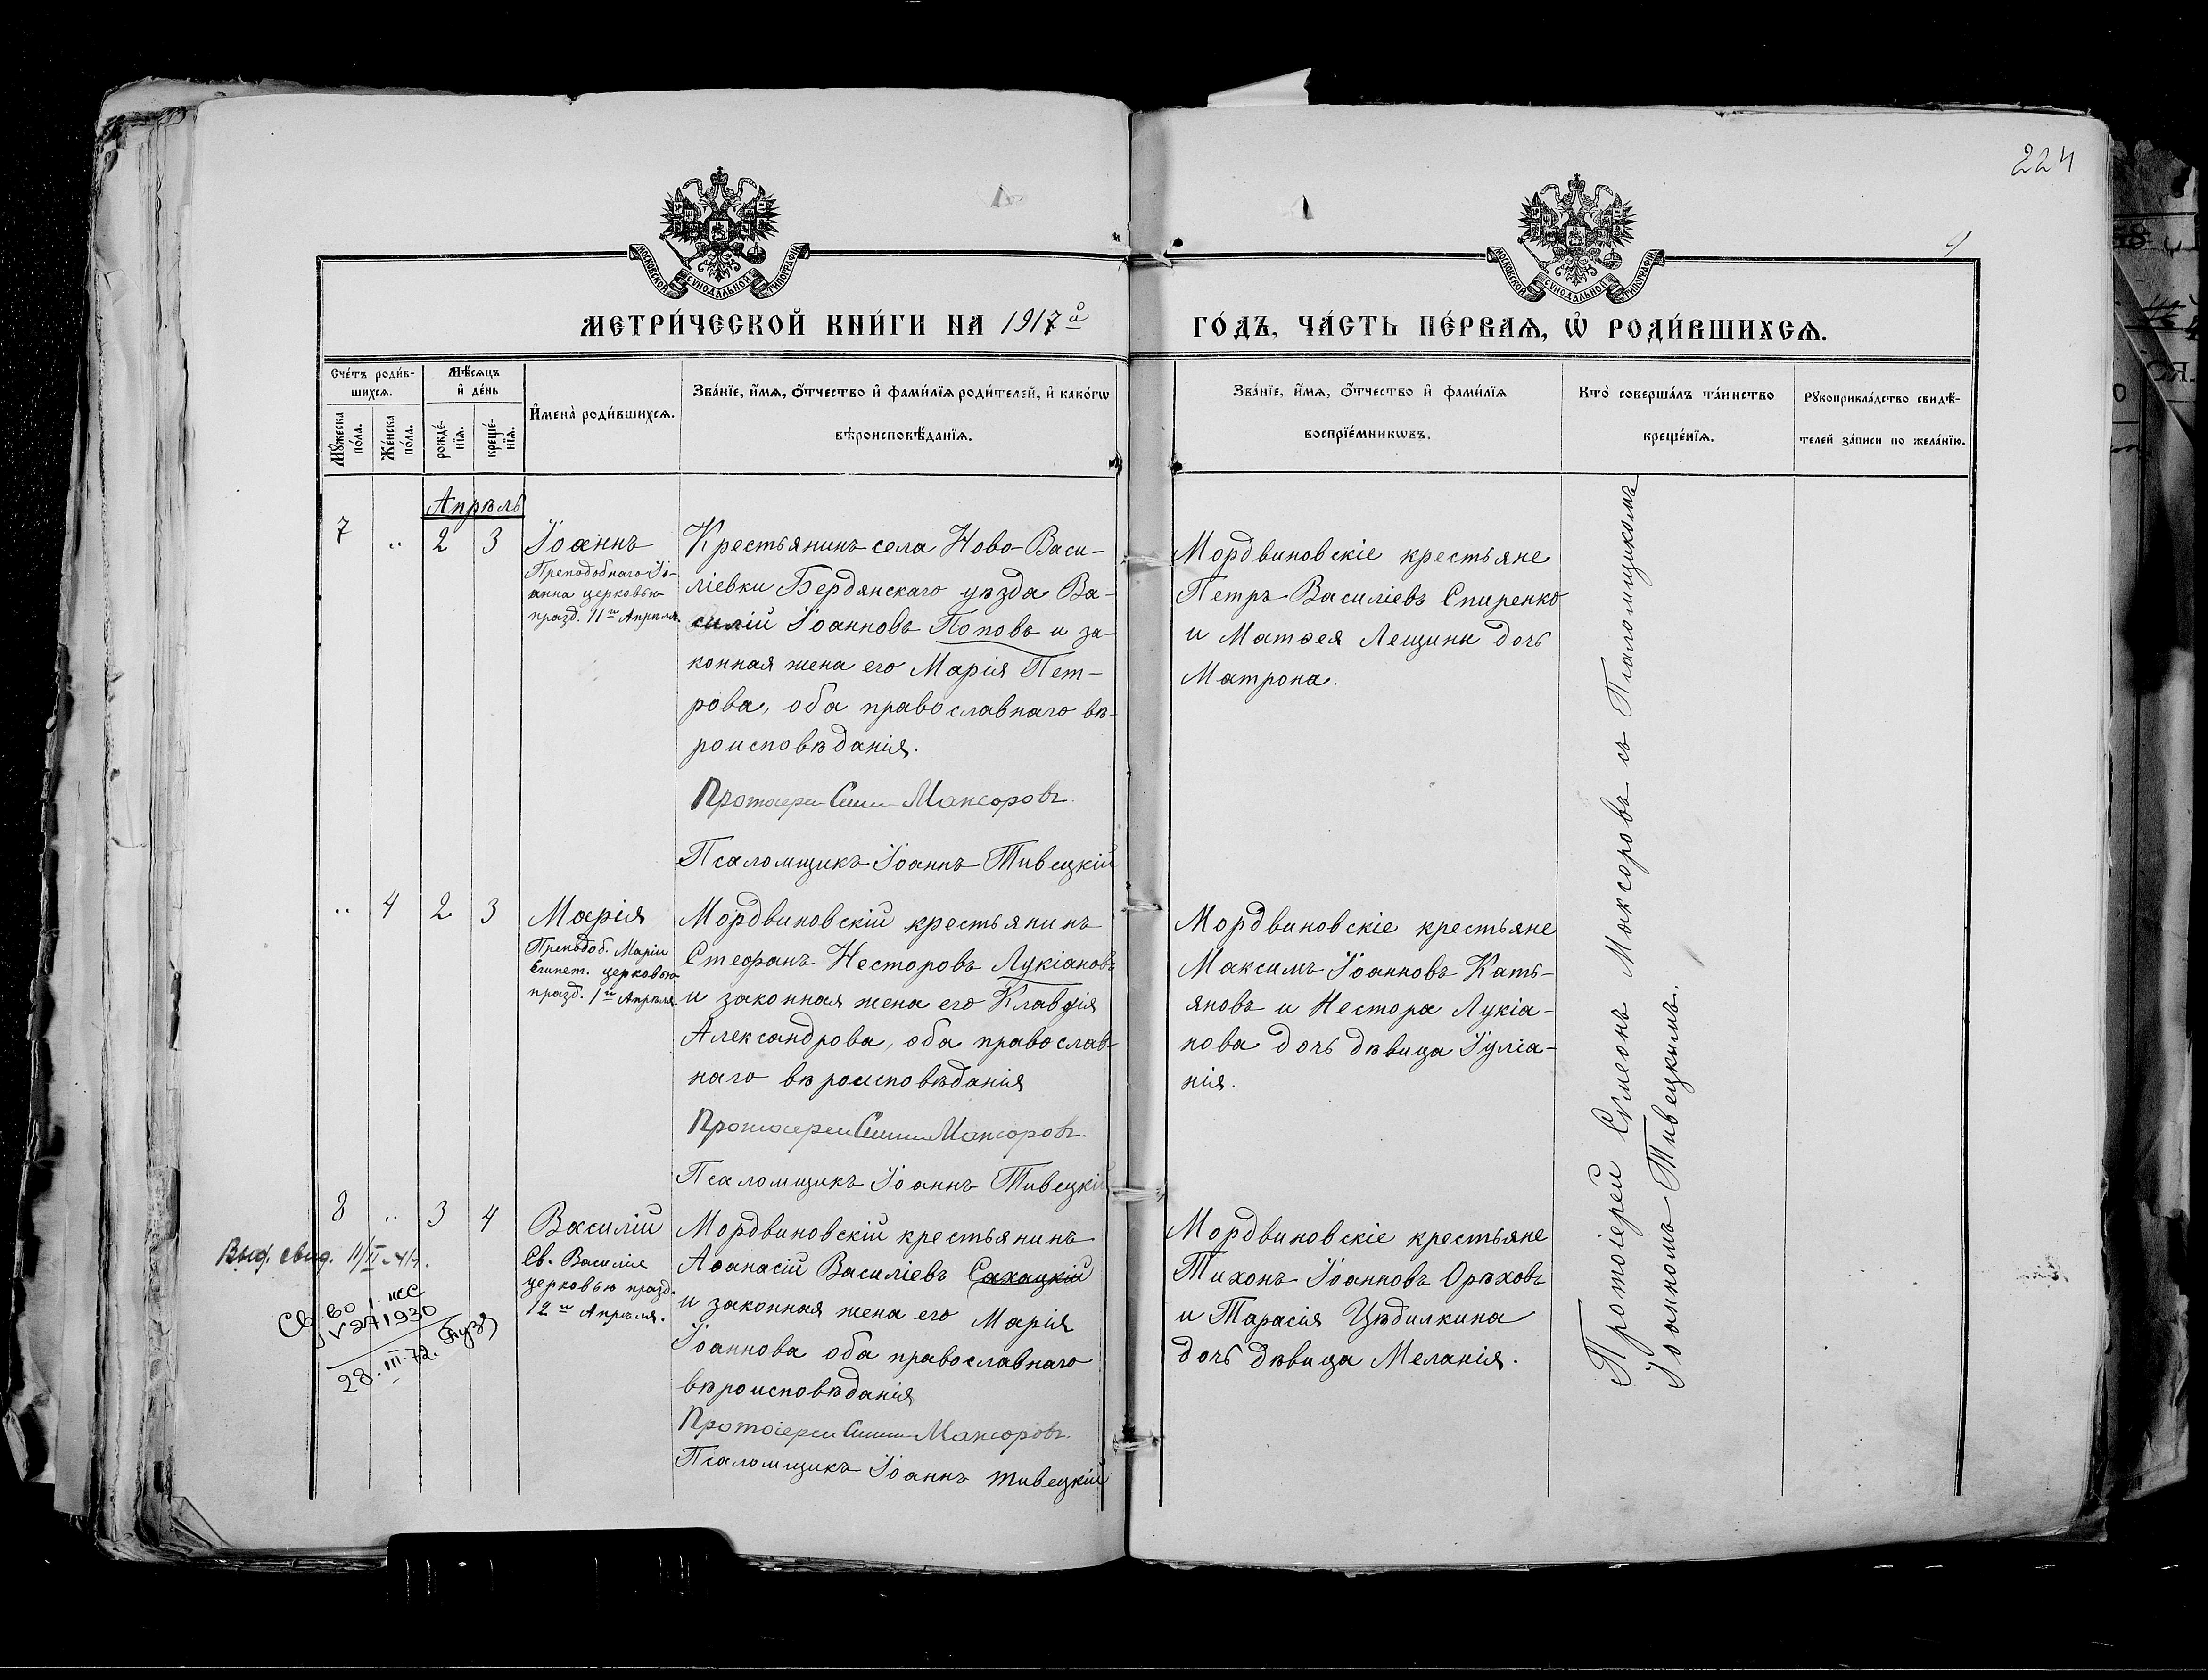 224
МОСКОВСКОЙ СѴНОДАЛЬНОЙ ТИПОГРАФІИ
МОСКОВСКОЙ СѴНОДАЛЬНОЙ ТИПОГРАФІИ
МЕТРИ́ЧЕСКОЙ КНИ́ГИ НА 1917й
ГО́ДЪ, ЧА́СТЬ ПЕ́РВАѦ, Ѡ҆ РОДИ́ВШИХСѦ.
Сче́тъ роди́в-
шихсѧ.
Мꙋ́жеска по́ла.
Же́нска по́ла.
Мѣ́сѧцъ
и҆ де́нь
рожде́-
нїѧ.
креще́-
нїѧ.
И҆мена̀ роди́вшихсѧ.
Зва́нїе, и҆́мѧ, ѻ҆́тчество и҆ фами́лїѧ роди́телей, и҆ како́гѡ
вѣроисповѣ́данїѧ.
Зва́нїе, и҆́мѧ, ѻ҆́тчество и҆ фами́лїѧ
воспрїе́мникѡвъ.
Кто̀ соверша́лъ та́инство
креще́нїѧ.
Рꙋкоприкла́дство свидѣ́-
телей за́писи по жела́нїю.
Апрѣль
7 " 2 3
Іоаннъ
Преподобнаго Іо-
анна церковью
празд. 11го Апрѣля.
Крестьянинъ села Ново-Васи-
ліевки Бердянскаго уѣзда Ва-
силій Іоанновъ Поповъ и за-
конная жена его Марія Пет-
рова, оба православнаго вѣ-
роисповѣданія.
Протоіерей Максоровъ.
Псаломщикъ Іоаннъ Тивецкій
Мордвиновскіе крестьяне
Петръ Василіевъ Спиренко
и Матѳея Лещины дочь
Матрона.
" 4 2 3
Марія
Преподоб. Маріи
Египет. церковью
празд. 1й Апрѣля
Мордвиновскій крестьянинъ
Стефанъ Несторовъ Лукіановъ
и законная жена его Клавдія
Александрова, оба православ-
наго вѣроисповѣданія
Протоіерей Максоровъ.
Псаломщикъ Іоаннъ Тивецкій
Мордвиновскіе крестьяне
Максимъ Іоанновъ Кать-
яновъ и Нестора Лукіа-
нова дочь дѣвица Іуліа-
нія.
8 " 3 4
Василій
Св. Василія
церковью празд.
12го Апрѣля.
Мордвиновскій крестьянинъ
Аѳанасій Василіевъ Сахацкій
и законная жена его Марія
Іоаннова оба православнаго
вѣроисповѣданія
Протоіерей Максоровъ.
Псаломщикъ Іоаннъ Тивецкій
Мордвиновскіе крестьяне
Тихонъ Іоанновъ Орѣховъ
и Тарасія Цѣдилкина
дочь дѣвица Меланія.
Протоіерей Сѵмеонъ Максоровъ съ Псаломщикомъ
Іоанномъ Тивецкимъ.
Выд. свид.
Св. во
271930
28.III-72.